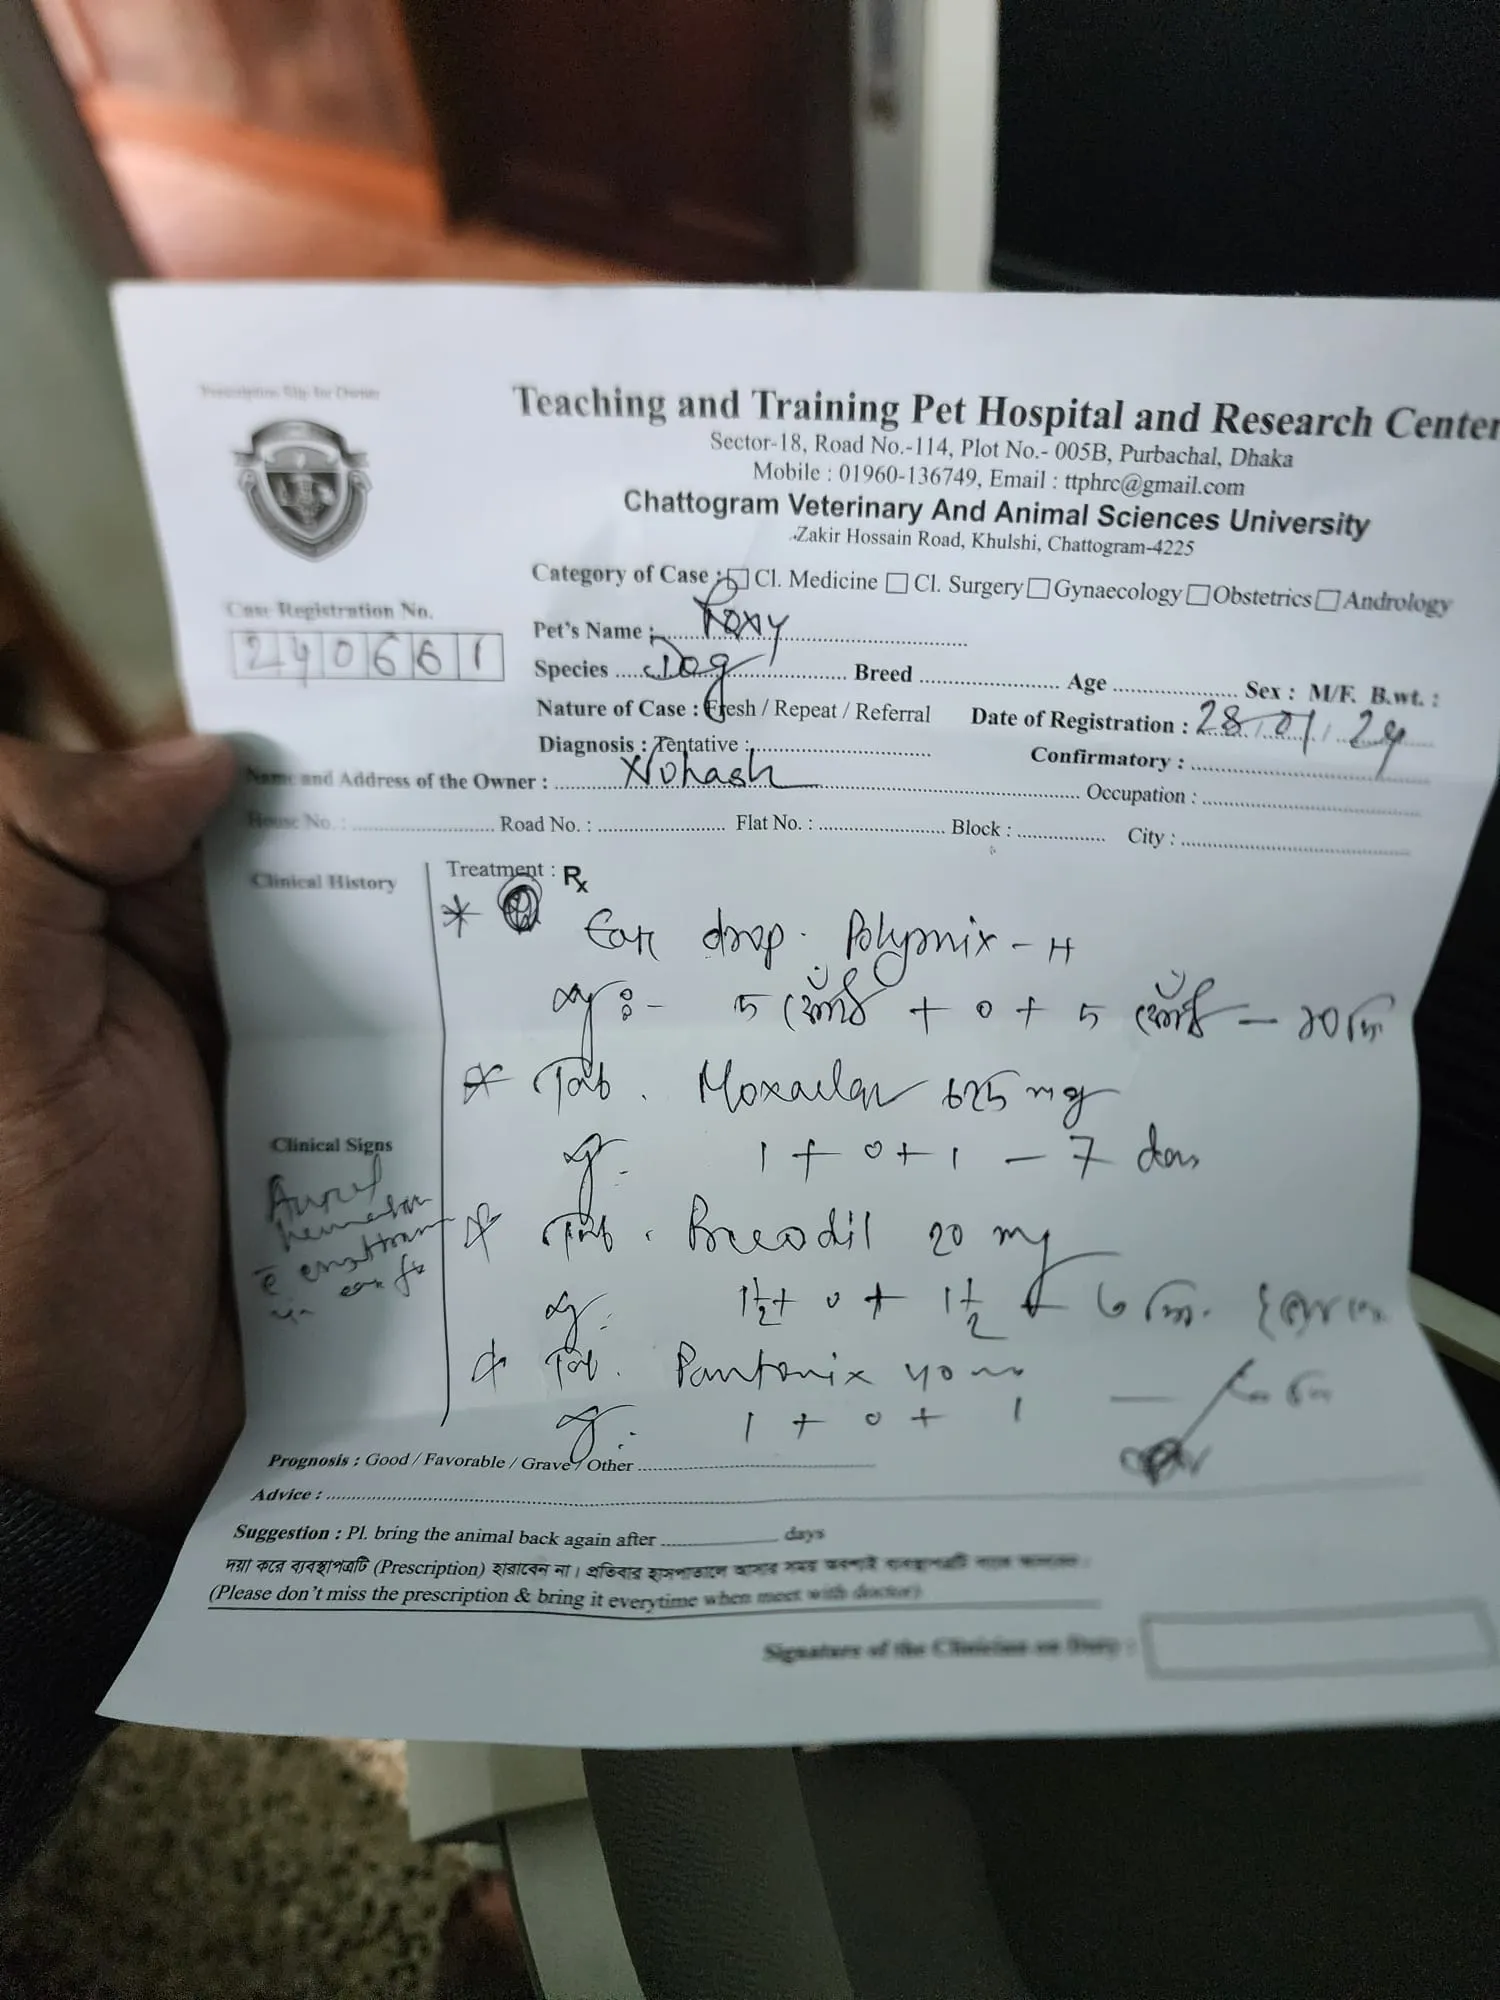 Prescription Slip for Owner
Teaching and Training Pet Hospital and Research Center
Sector-18, Road No.-114, Plot No.- 005B, Purbachal, Dhaka
Mobile : 01960-136749, Email : ttphrc@gmail.com
Chattogram Veterinary And Animal Sciences University
Zakir Hossain Road, Khulshi, Chattogram-4225
Category of Case : Cl. Medicine Cl. Surgery Gynaecology Obstetrics Andrology
Case Registration No.
240661
Pet's Name : Roxy
Species Dog Breed Age Sex : M/F. B.wt. :
Nature of Case : Fresh / Repeat / Referral Date of Registration : 28.01.24
Diagnosis : Tentative : Confirmatory :
Name and Address of the Owner : Nohash Occupation :
House No. : Road No. : Flat No. : Block : City :
Clinical History
Treatment : Rx
* Ear drop. Polymix-H
5 ফোঁটা + 0 + 5 ফোঁটা — ১০ দিন
* Tab. Moxaclav 625 mg
1 + 0 + 1 — 7 days
Clinical Signs
Aural
* Tab. 20 mg
1½ + 0 + 1½
* Tab. Pantonix 40
1 + 0 + 1
Prognosis : Good / Favorable / Grave / Other
Advice :
Suggestion : Pl. bring the animal back again after days
দয়া করে ব্যবস্থাপত্রটি (Prescription) হারাবেন না। প্রতিবার হাসপাতালে আসার সময় অবশ্যই ব্যবস্থাপত্রটি সাথে আনবেন।
(Please don't miss the prescription & bring it everytime when meet with doctor)
Signature of the Clinician on Duty :